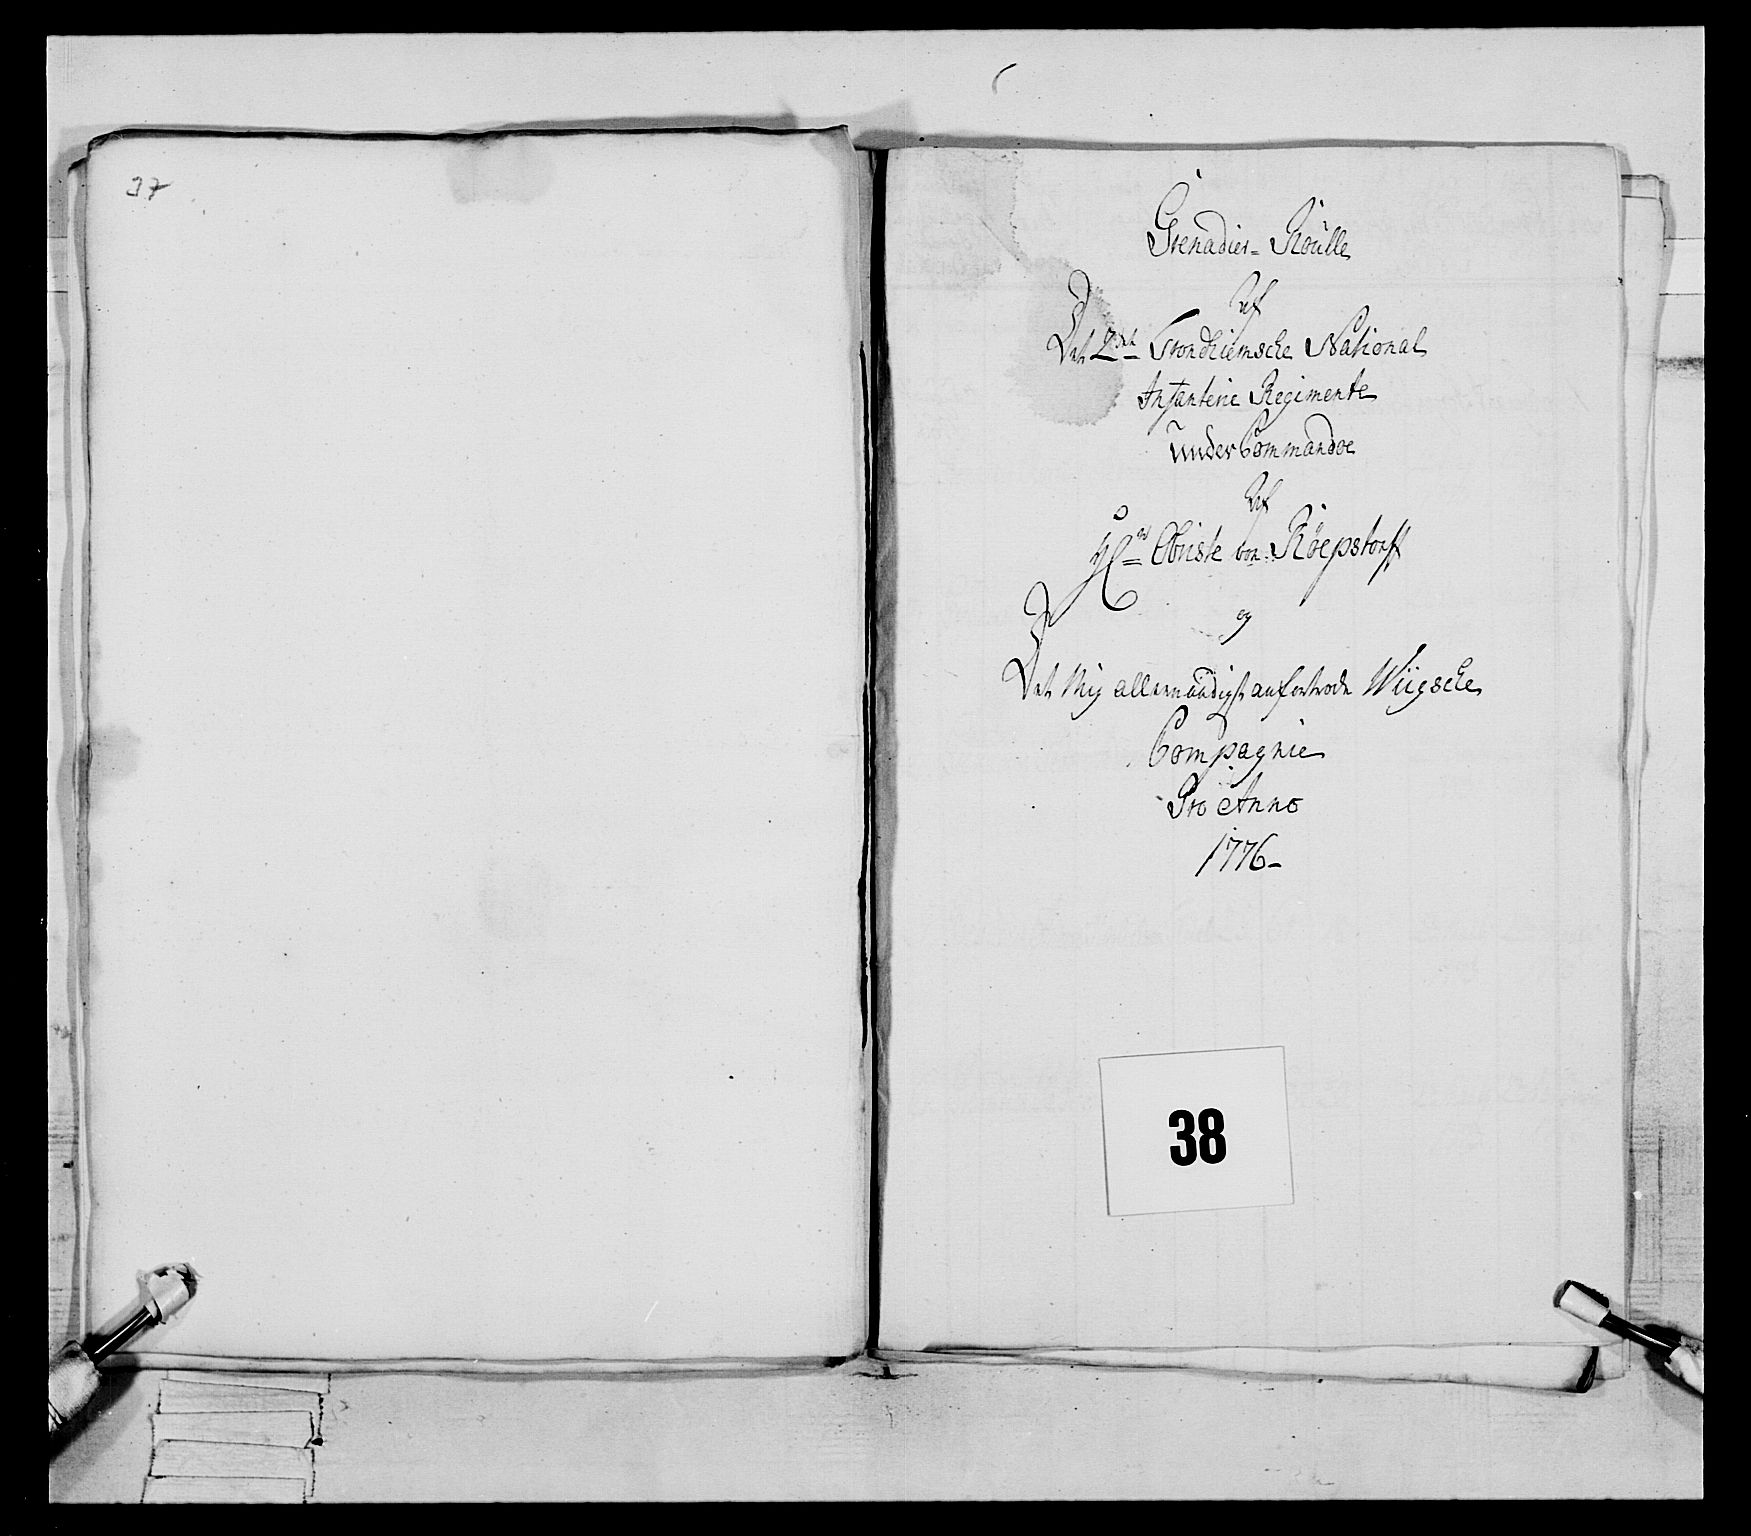 37
Grenadier= Roulle
Af
Det 2det Trondhiemsche National
Infanterie Regimente
under Commandoe
Af
Hr Obriste von Röepstorff
og
Det Mig allernaadigst anfortrode Wiigsche
Compagnie
Pro Anno
1776-
38